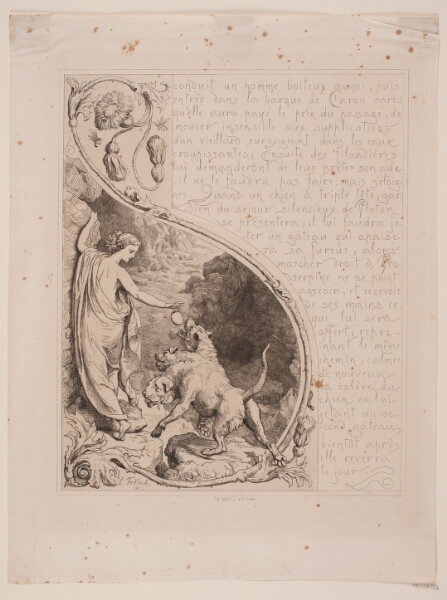 conduit un homme boiteux aussi, puis
entrée dans la barque de Caron après
qu'elle aura payé le prix du passage, de
meurer insensible aux supplications
d'un viellard surnageant dans les eaux
croupissantes; Ensuite des filandières
lui demanderont de leur prêter son aide
il ne le faudra pas faire, mais s'éloig
ner. Quand un chien à triple tête, gar
dien du séjour silencieux de Pluton
se présentera, il lui faudra je
ter un gâteau qui apaise
ra sa fureur, alors
marcher droit à Pro
serpine ne se point
asseoir, et recevoir
de ses mains ce
qui lui sera
offert, repre-
nant le même
chemin, calmer
de nouveau
la colère du
chien en lui
jetant un se-
cond gâteau,
bientôt après
elle reverra
le jour
Frölich